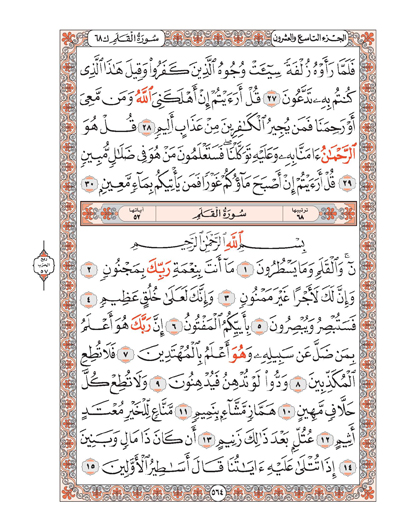 الجزء التاسع والعشرون سورة القلم ٦٨
فَلَمَّا رَأَوْهُ زُلْفَةً سِيٓـَٔتْ وُجُوهُ ٱلَّذِينَ كَفَرُوا۟ وَقِيلَ هَٰذَا ٱلَّذِى
كُنتُم بِهِۦ تَدَّعُونَ ٢٧ قُلْ أَرَءَيْتُمْ إِنْ أَهْلَكَنِىَ ٱللَّهُ وَمَن مَّعِىَ
أَوْ رَحِمَنَا فَمَن يُجِيرُ ٱلْكَٰفِرِينَ مِنْ عَذَابٍ أَلِيمٍ ٢٨ قُلْ هُوَ
ٱلرَّحْمَٰنُ ءَامَنَّا بِهِۦ وَعَلَيْهِ تَوَكَّلْنَا فَسَتَعْلَمُونَ مَنْ هُوَ فِى ضَلَٰلٍ مُّبِينٍ
٢٩ قُلْ أَرَءَيْتُمْ إِنْ أَصْبَحَ مَآؤُكُمْ غَوْرًا فَمَن يَأْتِيكُم بِمَآءٍ مَّعِينٍ ٣٠
ترتيبها ٦٨ سُورَةُ القَلَمِ آياتها ٥٢
بِسْمِ ٱللَّهِ ٱلرَّحْمَٰنِ ٱلرَّحِيمِ
نٓ وَٱلْقَلَمِ وَمَا يَسْطُرُونَ ١ مَآ أَنتَ بِنِعْمَةِ رَبِّكَ بِمَجْنُونٍ ٢
وَإِنَّ لَكَ لَأَجْرًا غَيْرَ مَمْنُونٍ ٣ وَإِنَّكَ لَعَلَىٰ خُلُقٍ عَظِيمٍ ٤
فَسَتُبْصِرُ وَيُبْصِرُونَ ٥ بِأَييِّكُمُ ٱلْمَفْتُونُ ٦ إِنَّ رَبَّكَ هُوَ أَعْلَمُ
بِمَن ضَلَّ عَن سَبِيلِهِۦ وَهُوَ أَعْلَمُ بِٱلْمُهْتَدِينَ ٧ فَلَا تُطِعِ
ٱلْمُكَذِّبِينَ ٨ وَدُّوا۟ لَوْ تُدْهِنُ فَيُدْهِنُونَ ٩ وَلَا تُطِعْ كُلَّ
حَلَّافٍ مَّهِينٍ ١٠ هَمَّازٍ مَّشَّآءٍۭ بِنَمِيمٍ ١١ مَّنَّاعٍ لِّلْخَيْرِ مُعْتَدٍ
أَثِيمٍ ١٢ عُتُلٍّۭ بَعْدَ ذَٰلِكَ زَنِيمٍ ١٣ أَن كَانَ ذَا مَالٍ وَبَنِينَ
١٤ إِذَا تُتْلَىٰ عَلَيْهِ ءَايَٰتُنَا قَالَ أَسَٰطِيرُ ٱلْأَوَّلِينَ ١٥
٥٦٤